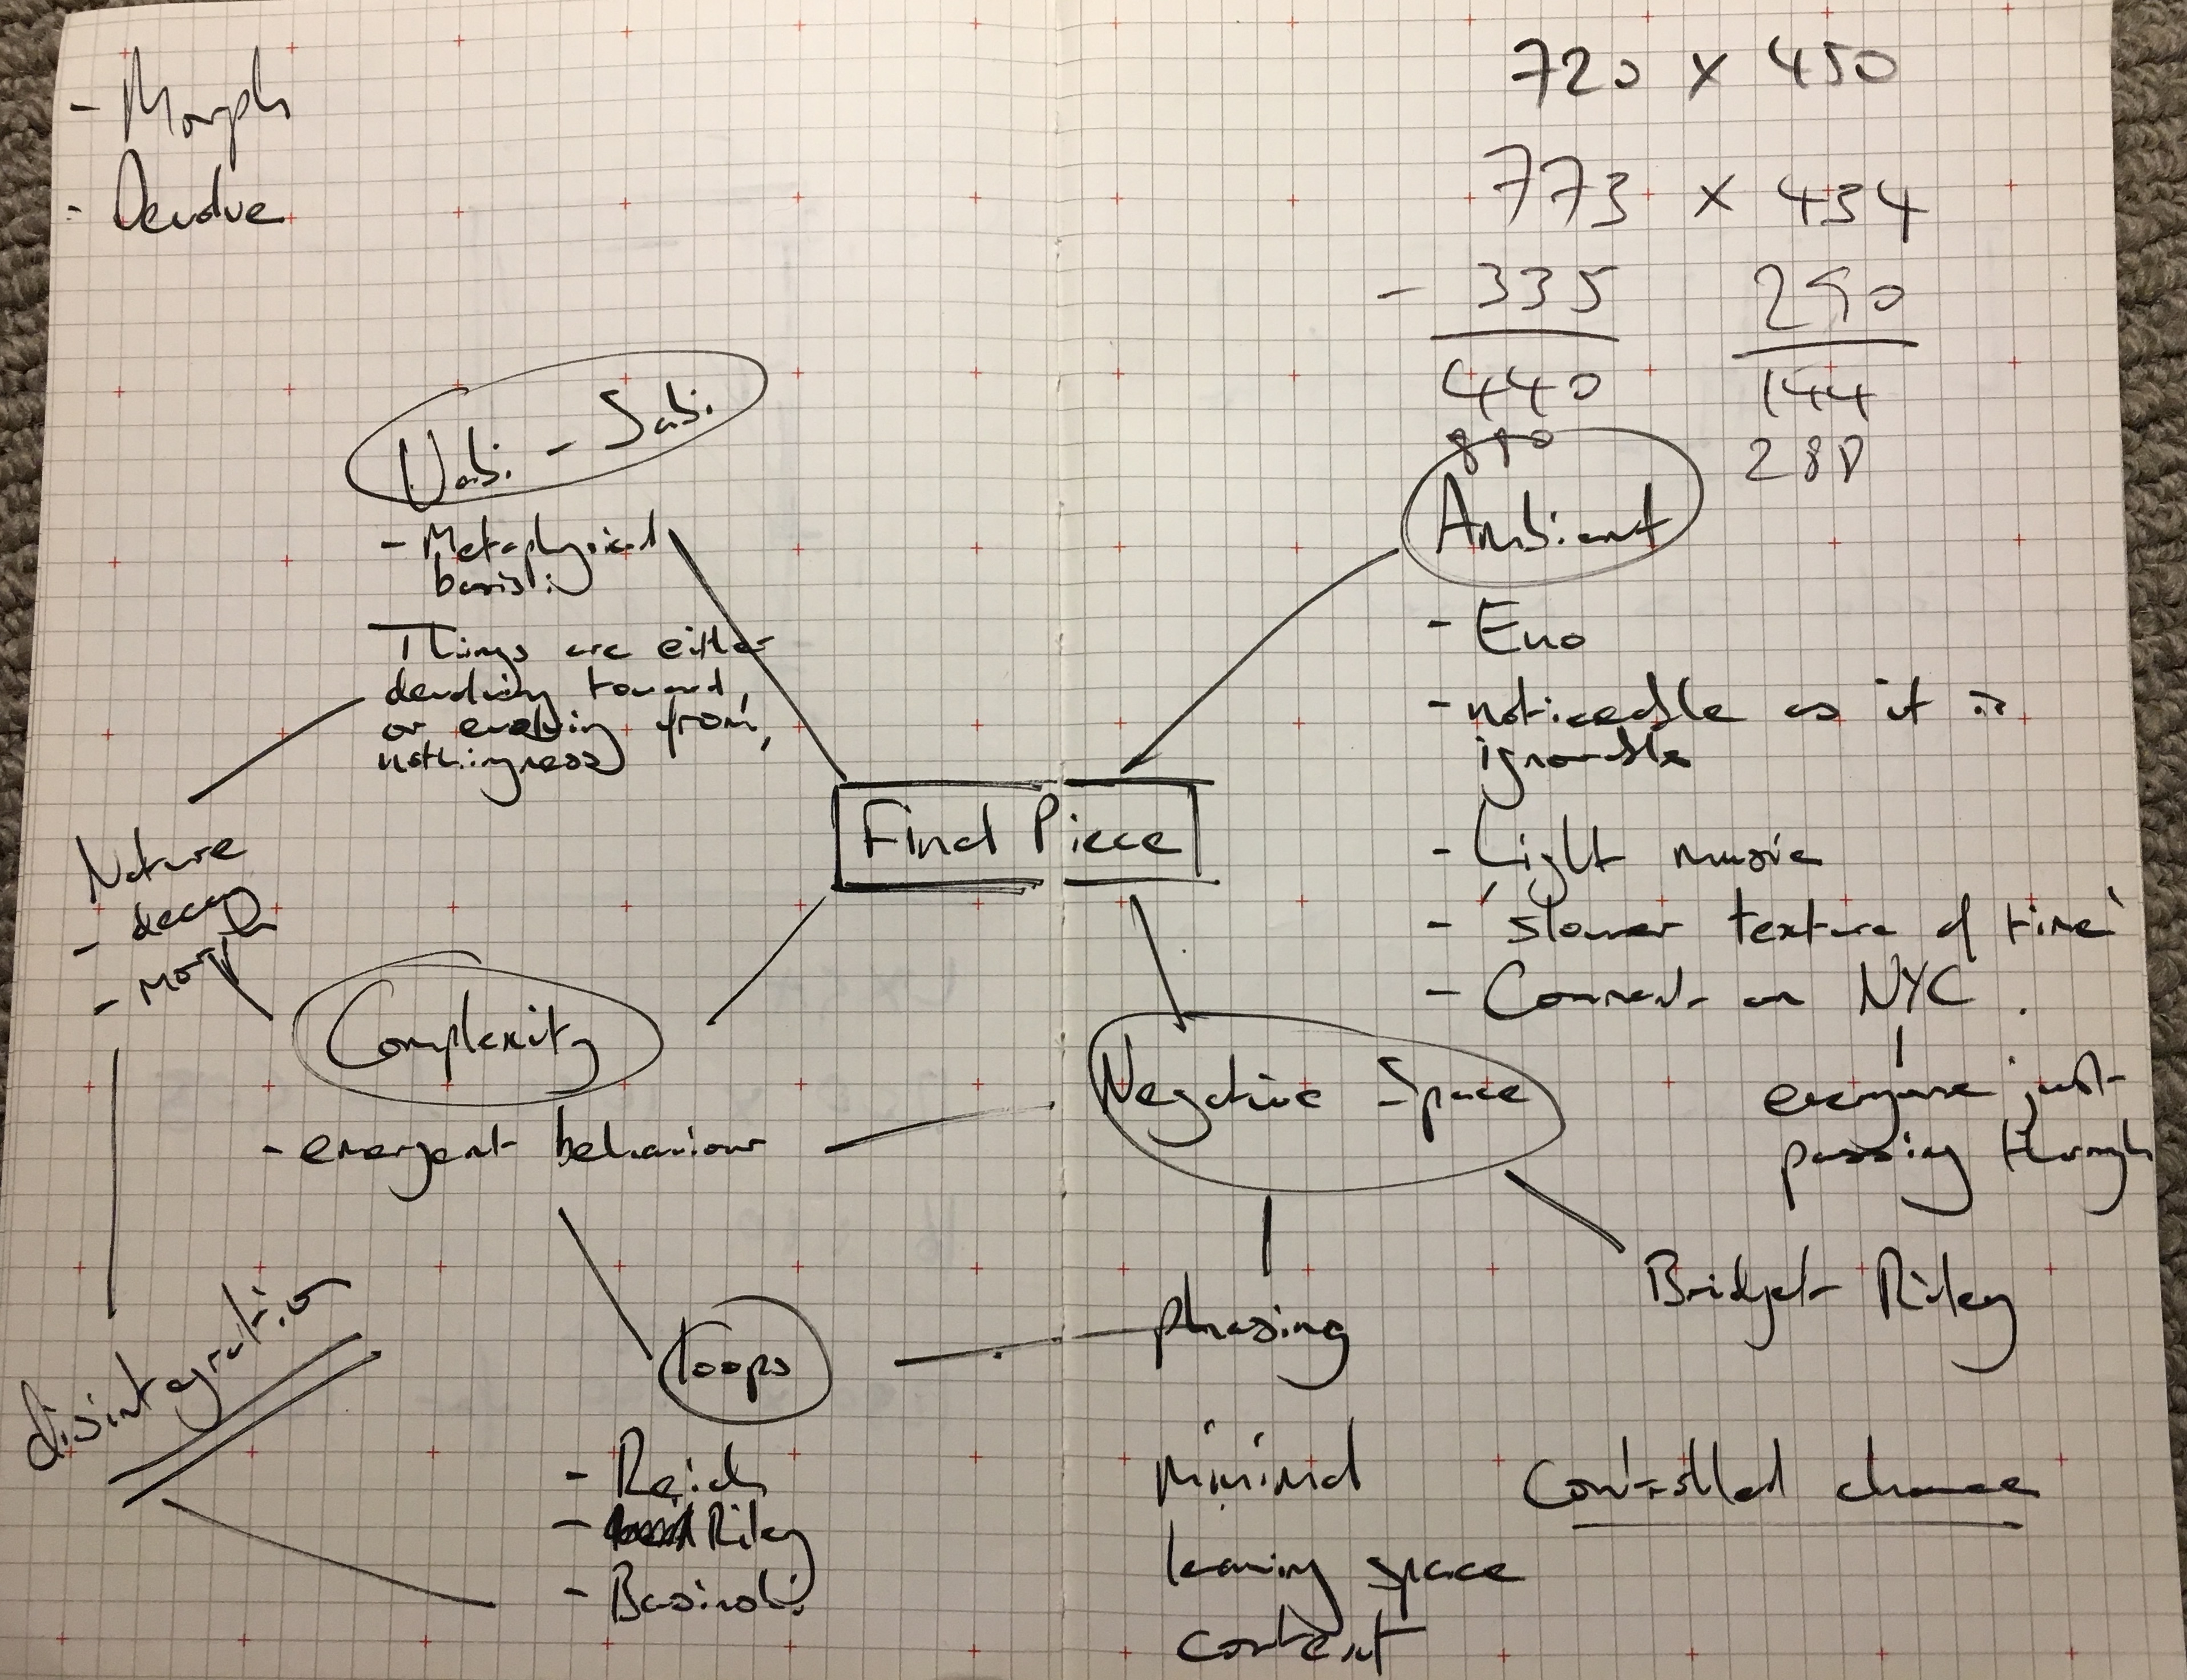 - Morph
- Devolve
720 x 450
773 x 434
- 335 290
440 144
880 288
Wabi - Sabi
- Metaphysical
basis:
Things are either
devolving toward,
or evolving from,
nothingness
Nature
- decay
- morph
Complexity
- emergent behaviour
disintegration
loops
- Reich
- Riley
- Basinski
Final Piece
Ambient
- Eno
- noticeable as it is
ignorable
- Light music
- 'slower texture of time'
- Comment on NYC.
everyone just
passing through
Negative Space
Bridget Riley
phasing
minimal
leaving space
context
Controlled chance